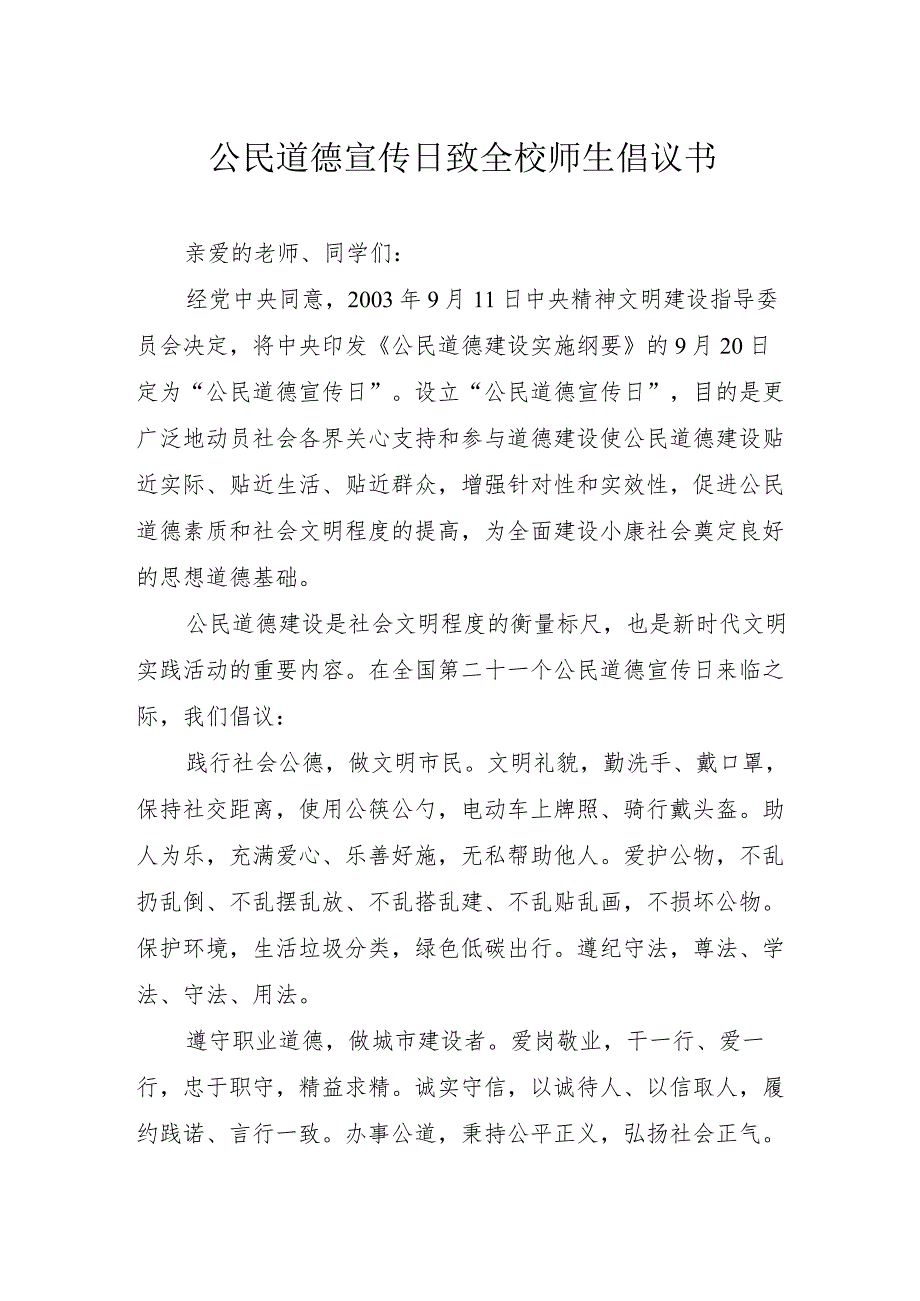 公民道德宣传日致全校师生倡议书
亲爱的老师、同学们：
经党中央同意，2003年9月11日中央精神文明建设指导委
员会决定，将中央印发《公民道德建设实施纲要》的9月20日
定为“公民道德宣传日”。设立“公民道德宣传日”，目的是更
广泛地动员社会各界关心支持和参与道德建设使公民道德建设贴
近实际、贴近生活、贴近群众，增强针对性和实效性，促进公民
道德素质和社会文明程度的提高，为全面建设小康社会奠定良好
的思想道德基础。
公民道德建设是社会文明程度的衡量标尺，也是新时代文明
实践活动的重要内容。在全国第二十一个公民道德宣传日来临之
际，我们倡议：
践行社会公德，做文明市民。文明礼貌，勤洗手、戴口罩，
保持社交距离，使用公筷公勺，电动车上牌照、骑行戴头盔。助
人为乐，充满爱心、乐善好施，无私帮助他人。爱护公物，不乱
扔乱倒、不乱摆乱放、不乱搭乱建、不乱贴乱画，不损坏公物。
保护环境，生活垃圾分类，绿色低碳出行。遵纪守法，尊法、学
法、守法、用法。
遵守职业道德，做城市建设者。爱岗敬业，干一行、爱一
行，忠于职守，精益求精。诚实守信，以诚待人、以信取人，履
约践诺、言行一致。办事公道，秉持公平正义，弘扬社会正气。